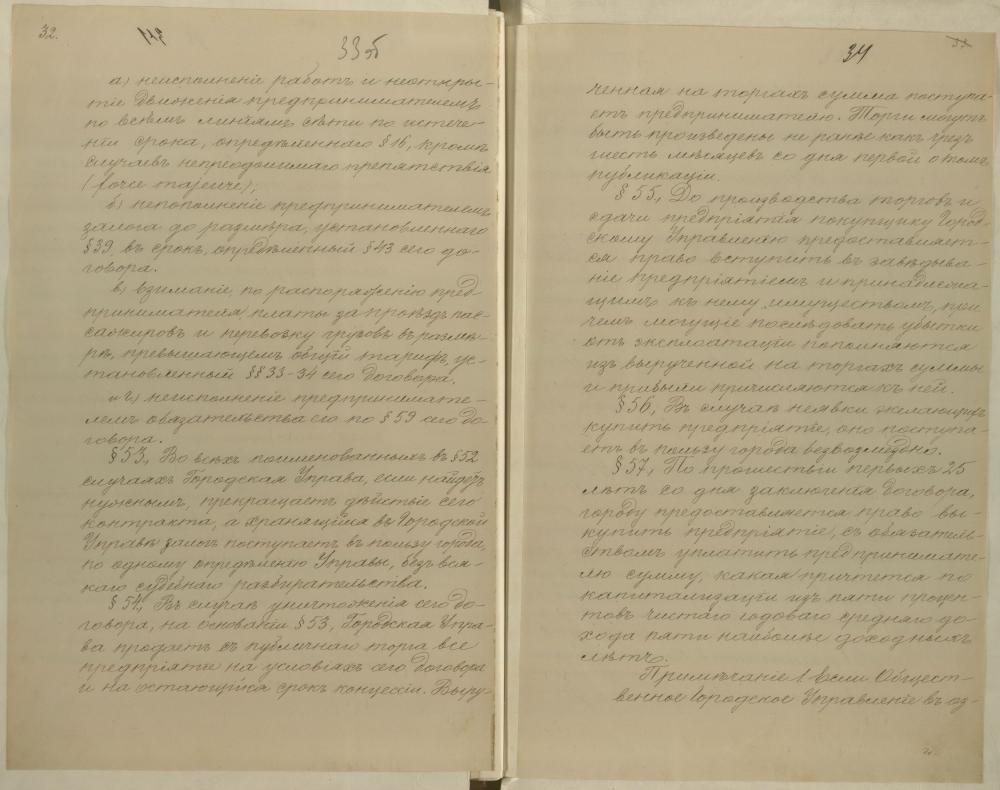 32.
33об
а) неисполненіе работъ и неоткры-
тіе движенія предпринимателемъ
по всѣмъ линіямъ сѣти по истече-
ніи срока, опредѣленнаго § 16, кромѣ
случаевъ непреодолимаго препятствія
(force majeure);
б) непополненіе предпринимателемъ
залога до размѣра, установленнаго
§ 39, въ срокъ, опредѣленный § 43 сего до-
говора.
в) взиманіе, по распоряженію пред-
принимателя, платы за проѣздъ пас-
сажировъ и перевозку грузовъ въ размѣ-
рѣ, превышающемъ общій тарифъ, ус-
тановленный §§ 33-34 сего договора.
и г) неисполненіе предпринимате-
лемъ обязательства его по § 59 сего до-
говора.
§ 53, Во всѣхъ поименованныхъ въ § 52
случаяхъ Городская Управа, если найдетъ
нужнымъ, прекращаетъ дѣйствіе сего
контракта, а хранящійся въ Городской
Управѣ залогъ поступаетъ въ пользу города,
по одному опредѣленію Управы, безъ вся-
каго судебнаго разбирательства.
§ 54, Въ случаѣ уничтоженія сего до-
говора, на основаніи § 53, Городская Упра-
ва продаетъ съ публичнаго торга все
предпріятіе на условіяхъ сего договора
и на остающійся срокъ концессіи. Выру-
34
ченная на торгахъ сумма поступа-
етъ предпринимателю. Торги могутъ
быть произведены не ранѣе какъ чрезъ
шесть мѣсяцевъ со дня первой о томъ
публикаціи.
§ 55, До производства торговъ и
сдачи предпріятія покупщику Город-
скому Управленію предоставляет-
ся право вступить въ завѣдыва-
ніе предпріятіемъ и принадлежа-
щимъ къ нему имуществомъ, при
чемъ могущіе послѣдовать убытки
отъ эксплоатаціи пополняются
изъ вырученной на торгахъ суммы
и прибыли причисляются къ ней.
§ 56, Въ случаѣ неявки желающихъ
купить предпріятіе, оно поступа-
етъ въ пользу города безвозмездно.
§ 57, По прошествіи первыхъ 25
лѣтъ со дня заключенія договора,
городу предоставляется право вы-
купить предпріятіе, съ обязатель-
ствомъ уплатить предпринимате-
лю сумму, какая причтется по
капитализаціи изъ пяти процен-
товъ чистаго годоваго средняго до-
хода пяти наиболѣе доходныхъ
лѣтъ.
Примѣчаніе 1. Если Общест-
венное Городское Управленіе въ оз-